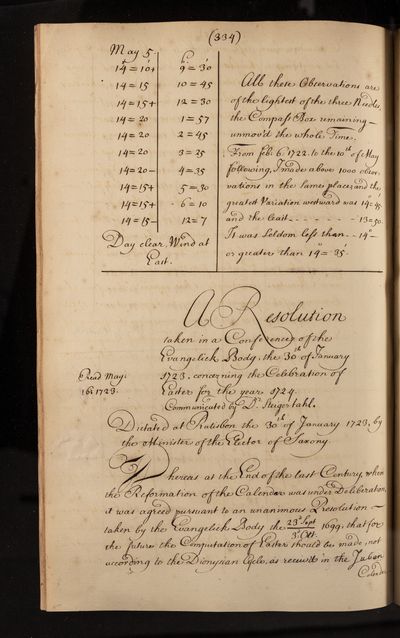 (334)
May 5. h '
14 = 10+ 9 = 30
14 = 15 10 = 45
14 = 15+ 12 = 30
14 = 20 1 = 57
14 = 20 2 = 45
14 = 20 3 = 25
14 = 20- 4 = 35
14 = 15+ 5 = 30
14 = 15+ 6 = 10
14 = 15- 12 = 7
Day clear, Wind at
East.
All these Observations are
of the lightest of the three Needles,
the Compass Box remaining —
unmov'd the whole Time.
From feb. 6. 1722. to the 10th of May
following, I made above 1000 obser-
vations in the same place, and the
greatest Variation westward was 14=45.
and the least - - - - - - 13=50.
It was Seldom less than - - 14° -
or greater than 14 = 35.
A Resolution
taken in a Conference of the
Evangelick Body, the 30th of January
1723. concerning the Celebration of
Easter for the year 1724.
Communicated by D. Steigertahl.
Read May.
16. 1723.
Dictated at Ratisbon the 30th of January 1723, by
the Minister of the Elector of Saxony.
Whereas at the End of the last Century, when
the Reformation of the Calendar was under Deliberation,
it was agreed pursuant to an unanimous Resolution —
taken by the Evangelick Body the 23 Sept / 3 Oct. 1699, that for
the future the Computation of Easter should be made, not
according to the Dionysian Cycle, as receiv'd in the Julian